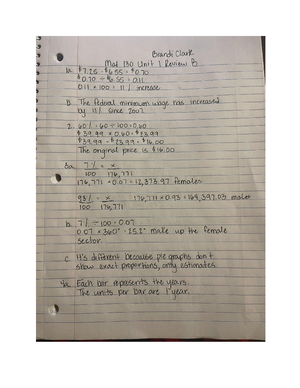 Brandi Clark
Mat 130 Unit 1 Review B
1a. $7.25 - $6.55 = $0.70
$0.70 ÷ $6.55 = 0.11
0.11 × 100 = 11% increase
b. The federal minimum wage has increased
by 11% since 2007.
2. 60% = 60 ÷ 100 = 0.60
$39.99 × 0.60 = $23.99
$39.99 - $23.99 = $16.00
The original price is $16.00
3a. 7% = x
100 176,771
176,771 × 0.07 = 12,373.97 females
93% = x 176,771 × 0.93 = 164,397.03 males
100 176,771
b. 7% ÷ 100 = 0.07
0.07 × 360° = 25.2° make up the female
sector.
c. It's different because pie graphs don't
show exact proportions, only estimates
4a. Each bar represents the years.
The units per bar are 1 year.